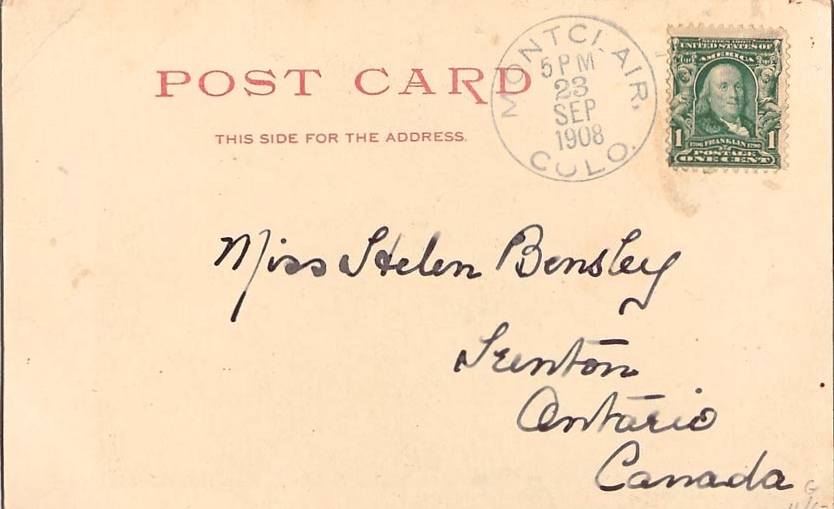 POST CARD
THIS SIDE FOR THE ADDRESS.
MONTCLAIR,
5 PM
23
SEP
1908
COLO.
SERIES 1902
UNITED STATES OF
AMERICA
1 1
1706 FRANKLIN 1790
POSTAGE
ONE CENT
Miss Helen Bensley
Trenton
Ontario
Canada
G